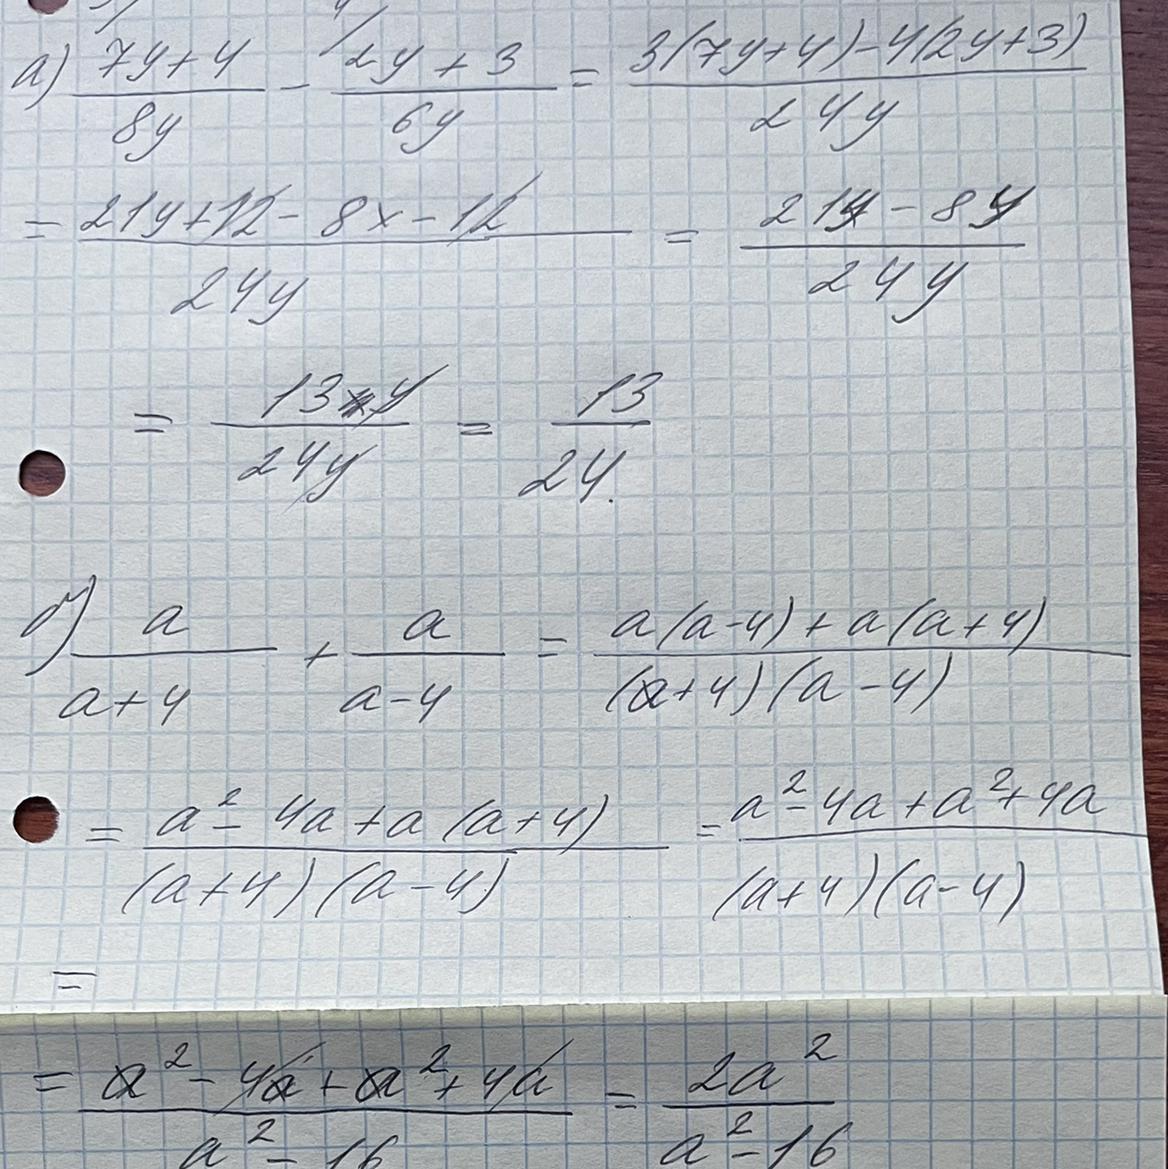 а) (7y+4)/(8y) - (2y+3)/(6y) = (3(7y+4)-4(2y+3))/(24y)
= (21y+12-8x-12)/(24y) = (21y-8y)/(24y)
= (13y)/(24y) = 13/24.
б) a/(a+4) + a/(a-4) = (a(a-4)+a(a+4))/((a+4)(a-4))
= (a²-4a+a(a+4))/((a+4)(a-4)) = (a²-4a+a²+4a)/((a+4)(a-4))
=
= (a²-4a+a²+4a)/(a²-16) = (2a²)/(a²-16)